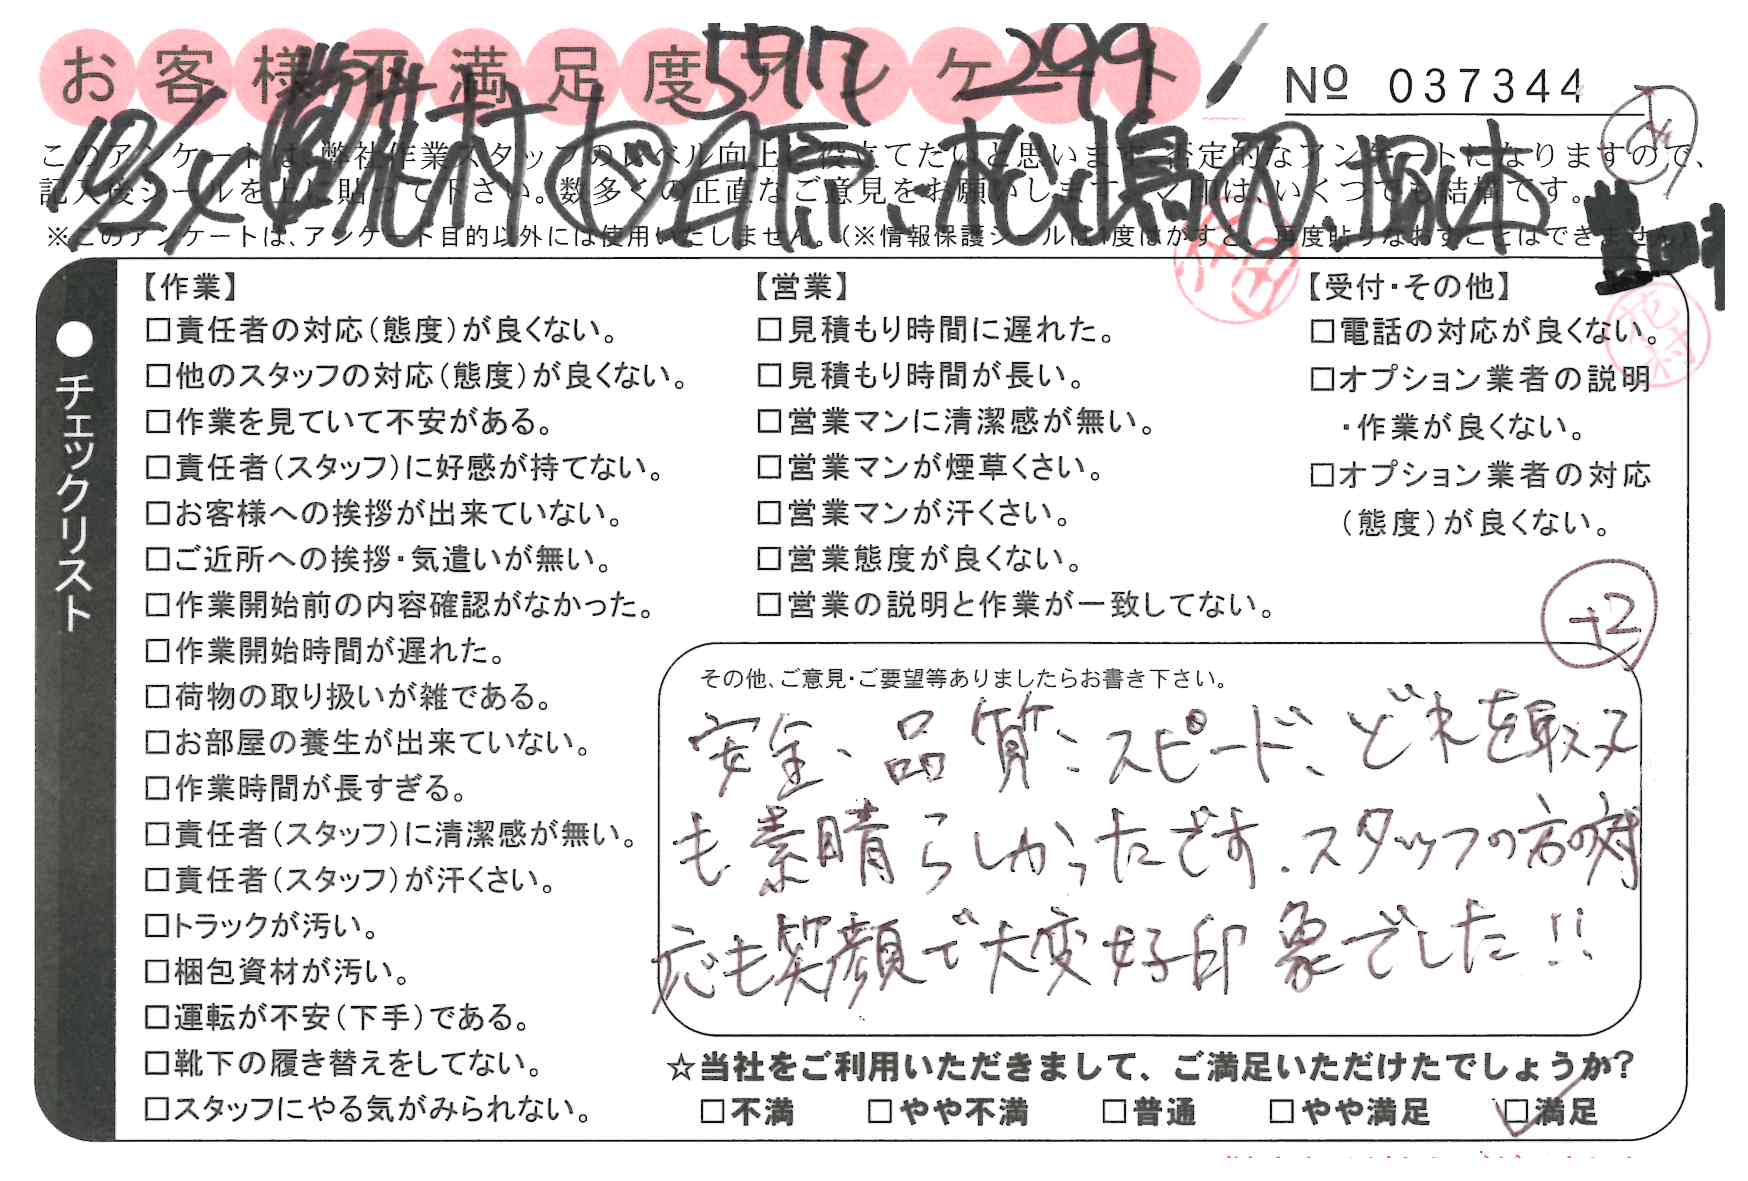 お客様不満足度アンケート
5717 299
№ 037344
このアンケートは、弊社作業スタッフのレベル向上に役立てたいと思います。否定的なアンケートになりますので、
記入後シールを上に貼って下さい。数多くの正直なご意見をお願いします。✓印は、いくつでも結構です。
※このアンケートは、アンケート目的以外には使用いたしません。(※情報保護シールは1度はがすと、再度貼りなおすことはできません)
●チェックリスト
【作業】
□責任者の対応(態度)が良くない。
□他のスタッフの対応(態度)が良くない。
□作業を見ていて不安がある。
□責任者(スタッフ)に好感が持てない。
□お客様への挨拶が出来ていない。
□ご近所への挨拶・気遣いが無い。
□作業開始前の内容確認がなかった。
□作業開始時間が遅れた。
□荷物の取り扱いが雑である。
□お部屋の養生が出来ていない。
□作業時間が長すぎる。
□責任者(スタッフ)に清潔感が無い。
□責任者(スタッフ)が汗くさい。
□トラックが汚い。
□梱包資材が汚い。
□運転が不安(下手)である。
□靴下の履き替えをしてない。
□スタッフにやる気がみられない。
【営業】
□見積もり時間に遅れた。
□見積もり時間が長い。
□営業マンに清潔感が無い。
□営業マンが煙草くさい。
□営業マンが汗くさい。
□営業態度が良くない。
□営業の説明と作業が一致してない。
【受付・その他】
□電話の対応が良くない。
□オプション業者の説明
・作業が良くない。
□オプション業者の対応
(態度)が良くない。
+2
その他、ご意見・ご要望等ありましたらお書き下さい。
安全、品質、スピード、どれを取っても
も素晴らしかったです。スタッフの方の対
応も笑顔で大変好印象でした!!
☆当社をご利用いただきまして、ご満足いただけたでしょうか?
□不満 □やや不満 □普通 □やや満足 □満足